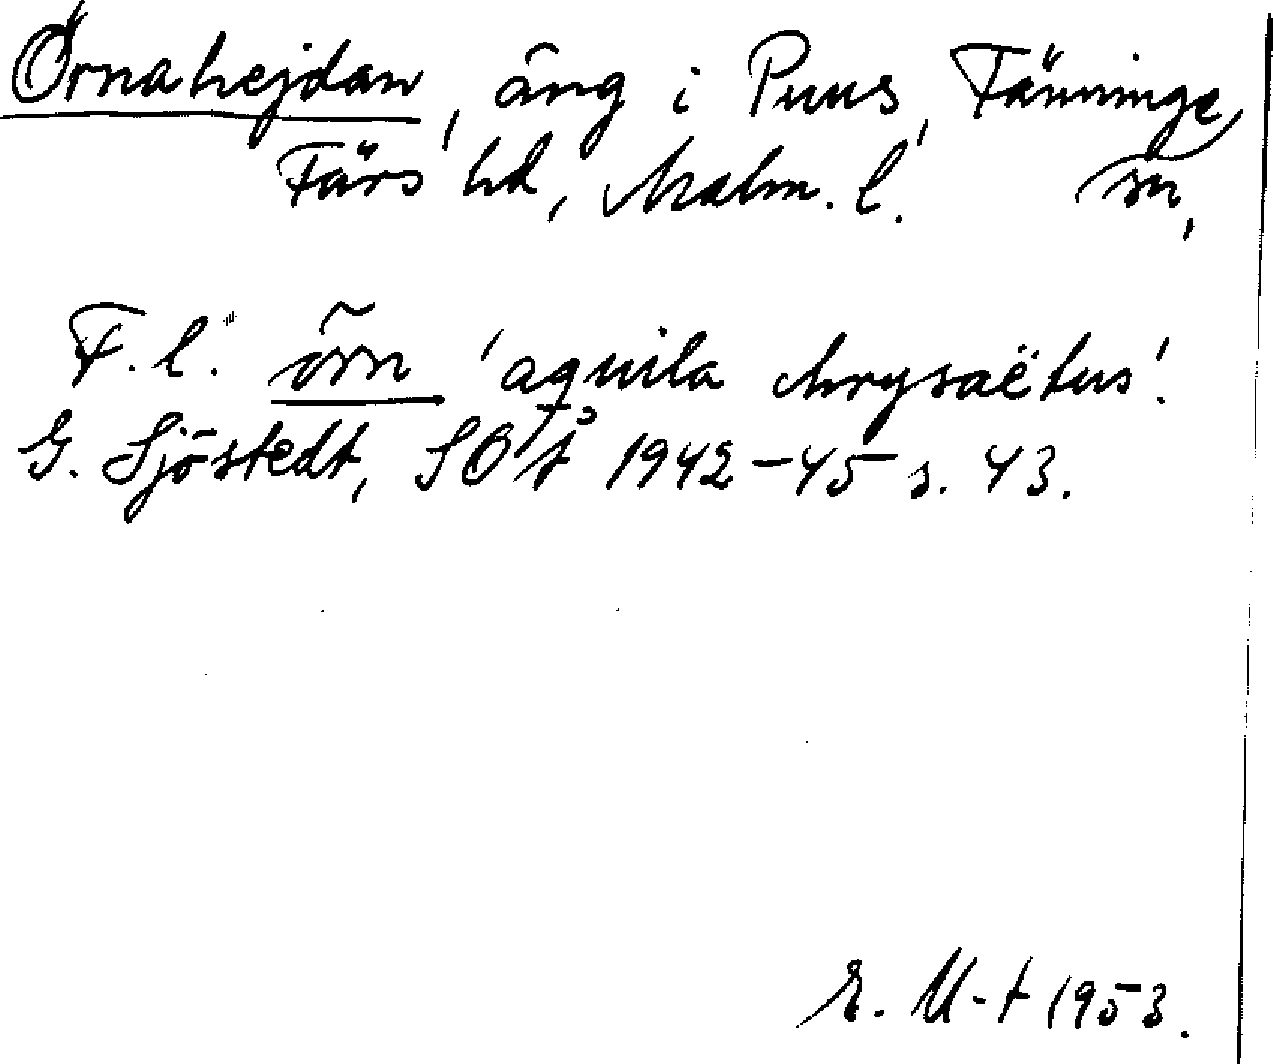 Örnahejdan, äng i Puus, Fänninge
Färs hd, Malm. l. sn,
F. l. örn 'aquila chrysaëtus'.
G. Sjöstedt, SOÅ 1942-45 s. 43.
E. U-t 1953.